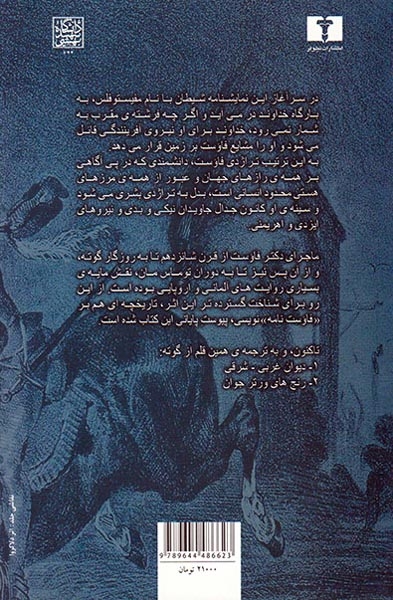 انتشارات نیلوفر
در سرآغاز این نمایشنامه شیطان با نام مفیستوفلس، به
بارگاه خداوند در می آید و اگر چه فرشته ی مقرب به
شمار نمی رود، خداوند برای او نیروی آفرینندگی قائل
می شود و او را مشایع فاوست بر زمین قرار می دهد.
به این ترتیب تراژدی فاوست، دانشمندی که در پی آگاهی
بر همه ی رازهای جهان و عبور از همه ی مرزهای
هستی محدود انسانی است، بدل به تراژدی بشری می شود
و سینه ی او کانون جدال جاویدان نیکی و بدی و نیروهای
ایزدی و اهریمنی.
ماجرای دکتر فاوست از قرن شانزدهم تا به روزگار گوته،
و از آن پس نیز تا به دوران توماس مان، نقش مایه ی
بسیاری روایت های آلمانی و اروپایی بوده است. از این
رو برای شناخت گسترده تر این اثر، تاریخچه ای هم بر
«فاوست نامه» نویسی، پیوست پایانی این کتاب شده است.
تاکنون، و به ترجمه ی همین قلم از گوته:
۱- دیوان غربی - شرقی
۲- رنج های ورتر جوان
نقاشی جلد: اثر دلاکروا
9 789644 486623
۲۱۰۰۰ تومان